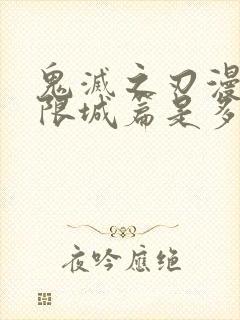 鬼滅之刃漫
限城篇是多
夜吟應绝